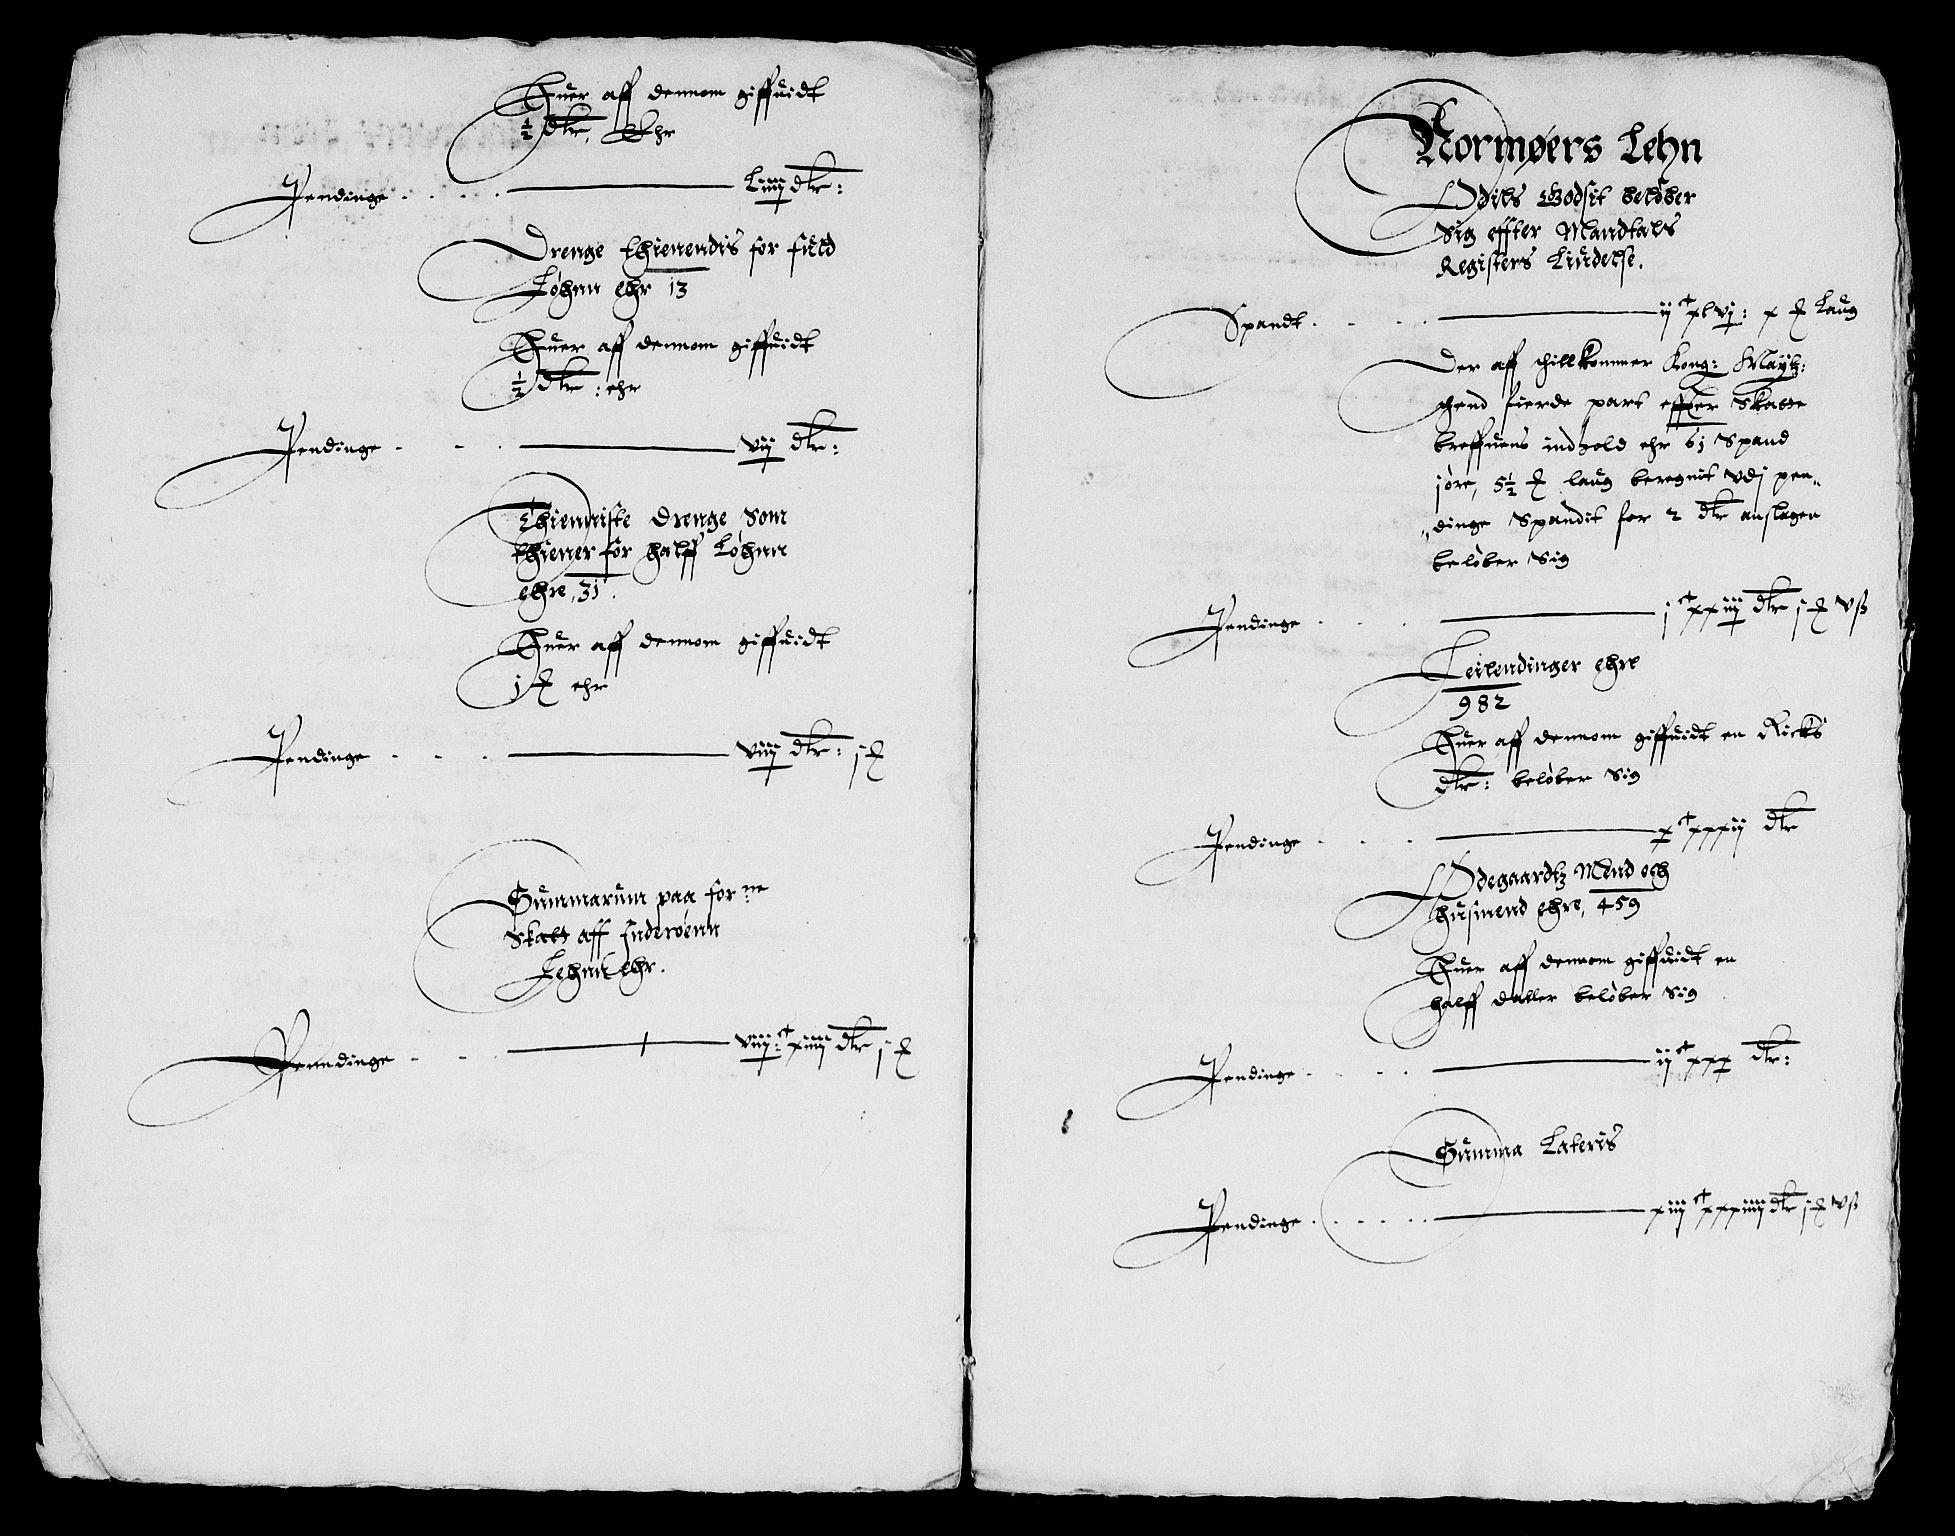 Huer aff dennom giffuidt
½ dlr, Ehr
Pendinge . . . . Liiij dlr:
Drenge thienendis for fuld
Løhnn ehr 13
Huer aff dennom giffuidt
½ dlr : ehr
Pendinge . . . vij dlr:
Thienniste drenge Som
thiener for halff Løhnn
ehre, 31.
Huer aff dennom giffuidt
j ort ehr
Pendinge . . . viij dlr: j ort
Summarum paa for:ne
Skatt aff Inderøenn
Lehnn ehr.
Penndinge . . . viij:C xiiij dlr j ort
Normøers Lehn
Odils Godsit beløber
Sig effter Mandtals
Registers Liudelse.
Spandt . . . . ijC xlvj: x ort Laug
Der aff thillkommer Kong: Maytz:
thend fierde part effter Skatte
breffuens indhold ehr 61 Spand
jøre, 5½ ort laug beregnit vdj pen„
„dinge Spandit for 2 dlr anslagen
beløber Sig
Pendinge . . . jC xxiij dlr j ort v ß
Leilendinger ehre
982
Huer aff dennom giffuidt en Ricks
dlr: beløber Sig
Pendinge . . . . xC xxxij dlr
Ødegaardtz Mend och
husmend ehre, 459
Huer aff dennom giffuidt en
halff daller beløber Sig
Pendinge . . . . ijC xxx dlr:
Summa Lateris
Pendinge . . . . . . xiijC xxxiiij dlr j ort v ß